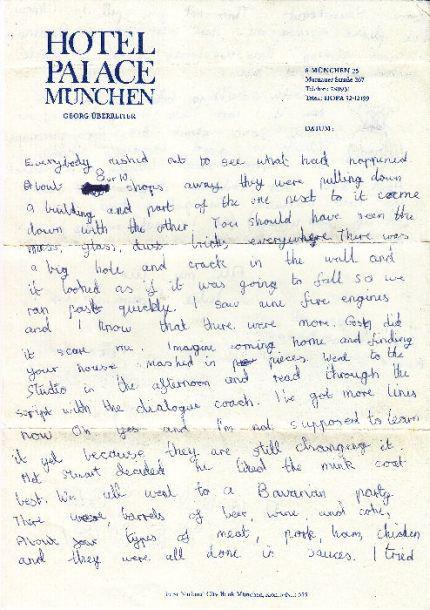 HOTEL
PALACE
MÜNCHEN
GEORG ÜBERREITER
8 MÜNCHEN 25
DATUM:
Everybody rushed out to see what had happened
About 8 or 10 shops away they were pulling down
a building and part of the one next to it came
down with the other. You should have seen the
mess, glass, dust bricks everywhere There was
a big hole and crack in the wall and
it looked as if it was going to fall so we
ran past quickly. I saw nine fire engines
and I know that there were more. Gosh, did
it scare me. Imagine coming home and finding
your house mashed in pieces. Went to the
studio in the afternoon and read through the
script with the dialogue coach. I've got more lines
now Oh yes and I'm not supposed to learn
it yet because they are still changing it.
Mel Stuart decided he liked the mink coat
best. We all went to a Bavarian party
There were, barrels of beer, wine and coke,
About four types of meat, pork, ham, chicken
and they were all done in sauces. I tried